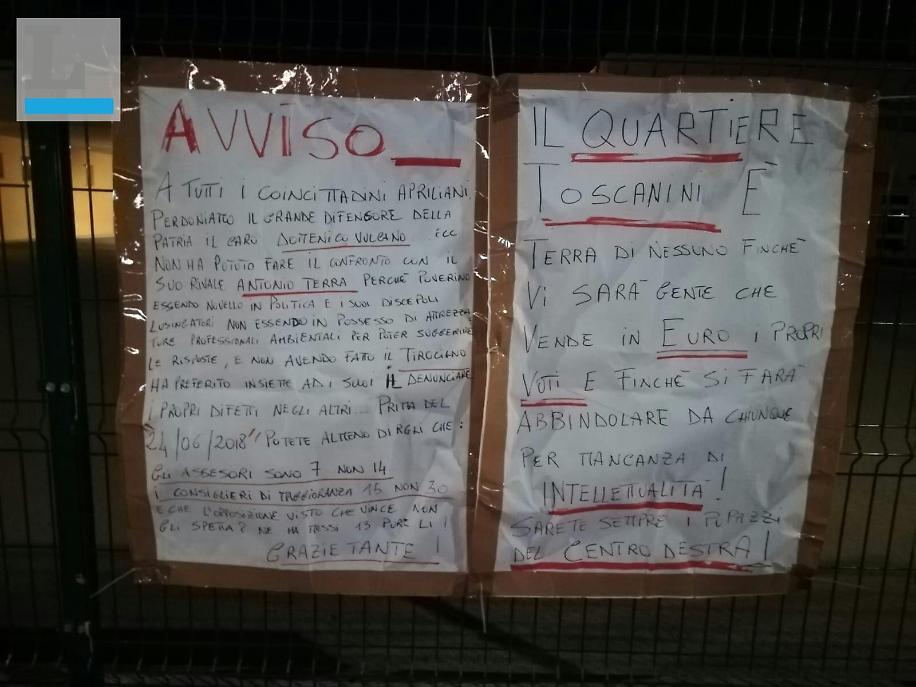 AVVISO
A TUTTI I COINCITTADINI APRILIANI
PERDONIAMO IL GRANDE DIFENSORE DELLA
PATRIA IL CARO DOMENICO VULCANO ECC
NON HA POTUTO FARE IL CONFRONTO CON IL
SUO RIVALE ANTONIO TERRA PERCHÈ POVERINO
ESSENDO NOVELLO IN POLITICA E I SUOI DISCEPOLI
LUSINGATORI NON ESSENDO IN POSSESSO DI ATTREZZA
TURE PROFESSIONALI AMBIENTALI PER POTER SUGGERIRE
LE RISPOSTE, E NON AVENDO FATTO IL TIROCIGNO
HA PREFERITO INSIEME AD I SUOI IL DENUNCIARE
I PROPRI DIFETTI NEGLI ALTRI... PRIMA DEL
24/06/2018" POTETE ALMENO DIRGLI CHE:
GLI ASSESORI SONO 7 NON 14
I CONSIGLIERI DI MAGGIORANZA 15 NON 30
E CHE L'OPPOSIZIONE VISTO CHE VINCE NON
GLI SPETTA? NE HA MESSI 13 PURE LI!
GRAZIE TANTE!
IL QUARTIERE
TOSCANINI È
TERRA DI NESSUNO FINCHÈ
VI SARÀ GENTE CHE
VENDE IN EURO I PROPRI
VOTI E FINCHÈ SI FARÀ
ABBINDOLARE DA CHIUNQUE
PER MANCANZA DI
INTELLETTUALITÀ!
SARETE SEMPRE I PUPAZZI
DEL CENTRO DESTRA!